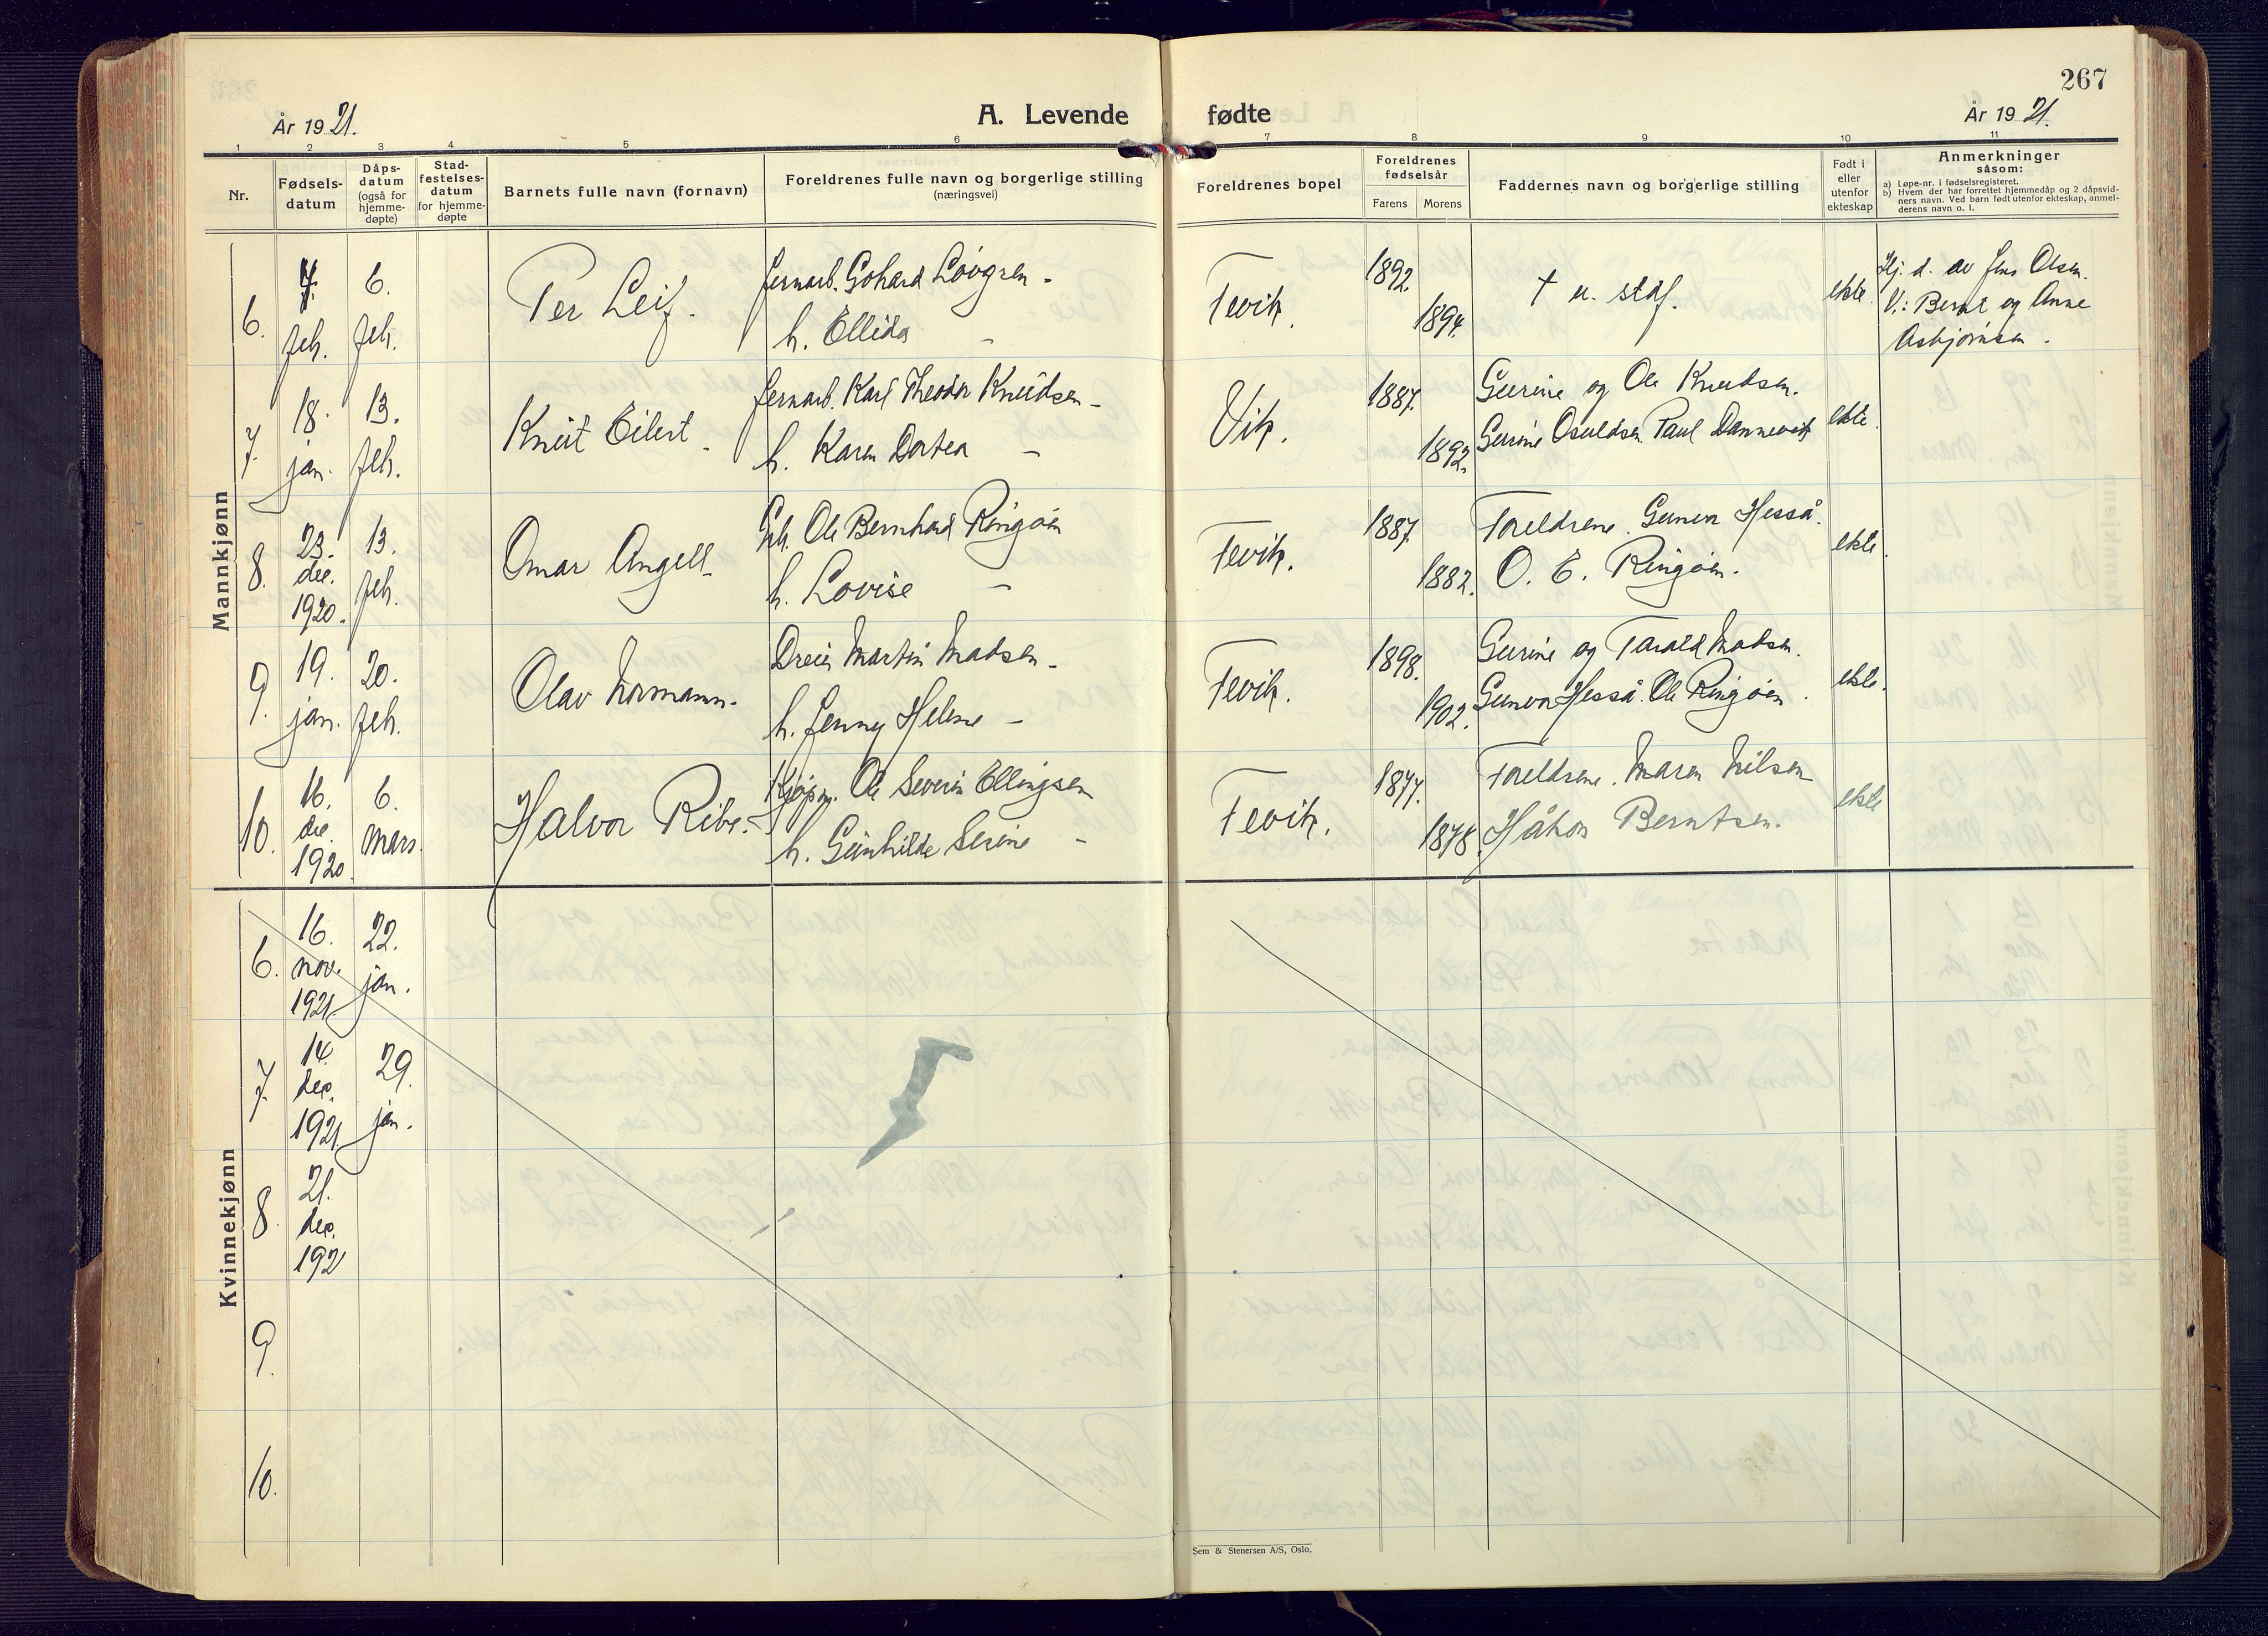 267
År 1921.
A. Levende
fødte
År 1921.
1 2 3 4 5 6 7 8 9 10 11
Nr.
Fødsels-
datum
Dåps-
datum
(også for
hjemme-
døpte)
Stad-
festelses-
datum
for hjemme-
døpte
Barnets fulle navn (fornavn)
Foreldrenes fulle navn og borgerlige stilling
(næringsvei)
Foreldrenes bopel
Foreldrenes
fødselsår
Farens Morens
Faddernes navn og borgerlige stilling
Født i
eller
utenfor
ekteskap
Anmerkninger
såsom:
a) Løpe-nr. i fødselsregisteret.
b) Hvem der har forrettet hjemmedåp og 2 dåpsvid-
ners navn. Ved barn født utenfor ekteskap, anmel-
derens navn o. l.
Mannkjønn
6.
feb.
6.
feb.
Per Leif.
Jernarb. Gohard Lövgren -
h. Ellida -
Fevik.
1892.
1894.
† u. staf.
ekte.
Hj. d. av Jens Olsen.
V.: Bernt og Anne
Asbjørnsen.
7.
18.
jan.
13.
feb.
Knut Eilert.
Jernarb. Karl Theodor Knudsen -
h. Karen Dortea -
Vik.
1887.
1892.
Gurine og Ole Knudsen.
Gurine Osuldsen. Paul Dannevik
ekte.
8.
23.
dec.
1920.
13.
feb.
Omar Angell.
Ole Bernhard Ringöen
h. Lovise -
Fevik.
1887.
1882.
Foreldrene. Gunvor Hesså.
O. E. Ringöen.
ekte.
9.
19.
jan.
20.
feb.
Olav Normann.
Dreier Martin Madsen -
h. Jenny Helene -
Fevik.
1898.
1902.
Gurine og Tarald Madsen.
Gunvor Hesså. Ole Ringöen.
ekte.
10.
16.
dec.
1920.
6.
mars.
Halvor Ribe.
Kjøpm. Ole Severin Ellingsen
h. Gunhilde Serine -
Fevik.
1877.
1878.
Foreldrene. Maren Nilsen
Håkon Berntsen.
ekte
Kvinnekjønn
6.
16.
nov.
1921
22.
jan.
7.
14.
dec.
1921.
29.
jan.
8.
21.
dec.
192
9.
10.
Sem & Stenersen A/S, Oslo.